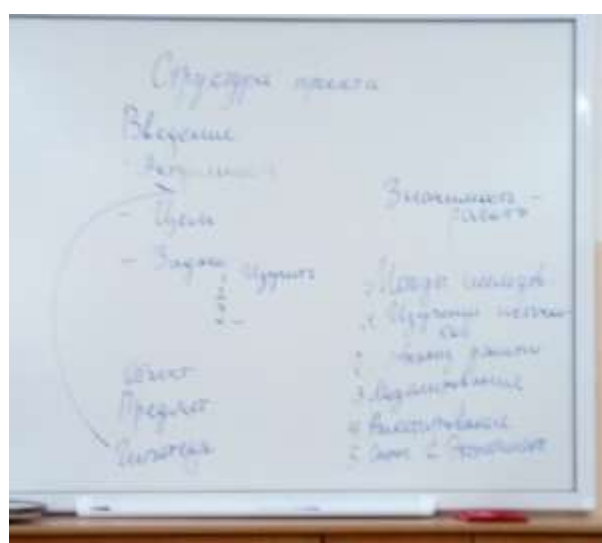 Структура проекта
Введение
Актуальность
- Цель
- Задачи
Изучить
Объект
Предмет
Гипотеза
Значимость -
работы
Методы исследов
1. Изучение источни-
ков
2. Анализ
3. Моделирование
4 Анкетирование
5